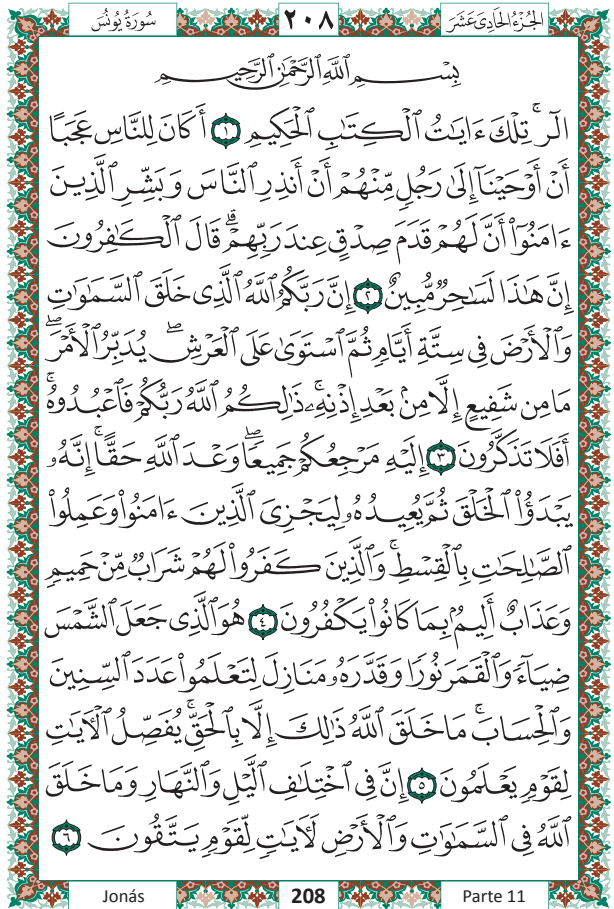 سُورَةُ يُونُسَ ٢٠٨ الجُزْءُ الحَادِي عَشَرَ
بِسْمِ ٱللَّهِ ٱلرَّحْمَٰنِ ٱلرَّحِيمِ
الٓرۚ تِلْكَ ءَايَٰتُ ٱلْكِتَٰبِ ٱلْحَكِيمِ ١ أَكَانَ لِلنَّاسِ عَجَبًا
أَنْ أَوْحَيْنَآ إِلَىٰ رَجُلٍ مِّنْهُمْ أَنْ أَنذِرِ ٱلنَّاسَ وَبَشِّرِ ٱلَّذِينَ
ءَامَنُوٓاْ أَنَّ لَهُمْ قَدَمَ صِدْقٍ عِندَ رَبِّهِمْۗ قَالَ ٱلْكَٰفِرُونَ
إِنَّ هَٰذَا لَسَٰحِرٌ مُّبِينٌ ٢ إِنَّ رَبَّكُمُ ٱللَّهُ ٱلَّذِى خَلَقَ ٱلسَّمَٰوَٰتِ
وَٱلْأَرْضَ فِى سِتَّةِ أَيَّامٍ ثُمَّ ٱسْتَوَىٰ عَلَى ٱلْعَرْشِۖ يُدَبِّرُ ٱلْأَمْرَۖ
مَا مِن شَفِيعٍ إِلَّا مِنۢ بَعْدِ إِذْنِهِۦۚ ذَٰلِكُمُ ٱللَّهُ رَبُّكُمْ فَٱعْبُدُوهُۚ
أَفَلَا تَذَكَّرُونَ ٣ إِلَيْهِ مَرْجِعُكُمْ جَمِيعًاۖ وَعْدَ ٱللَّهِ حَقًّاۚ إِنَّهُۥ
يَبْدَؤُاْ ٱلْخَلْقَ ثُمَّ يُعِيدُهُۥ لِيَجْزِىَ ٱلَّذِينَ ءَامَنُواْ وَعَمِلُواْ
ٱلصَّٰلِحَٰتِ بِٱلْقِسْطِۚ وَٱلَّذِينَ كَفَرُواْ لَهُمْ شَرَابٌ مِّنْ حَمِيمٍ
وَعَذَابٌ أَلِيمٌۢ بِمَا كَانُواْ يَكْفُرُونَ ٤ هُوَ ٱلَّذِى جَعَلَ ٱلشَّمْسَ
ضِيَآءً وَٱلْقَمَرَ نُورًا وَقَدَّرَهُۥ مَنَازِلَ لِتَعْلَمُواْ عَدَدَ ٱلسِّنِينَ
وَٱلْحِسَابَۚ مَا خَلَقَ ٱللَّهُ ذَٰلِكَ إِلَّا بِٱلْحَقِّۚ يُفَصِّلُ ٱلْأٓيَٰتِ
لِقَوْمٍ يَعْلَمُونَ ٥ إِنَّ فِى ٱخْتِلَٰفِ ٱلَّيْلِ وَٱلنَّهَارِ وَمَا خَلَقَ
ٱللَّهُ فِى ٱلسَّمَٰوَٰتِ وَٱلْأَرْضِ لَأٓيَٰتٍ لِّقَوْمٍ يَتَّقُونَ ٦
Jonás 208 Parte 11